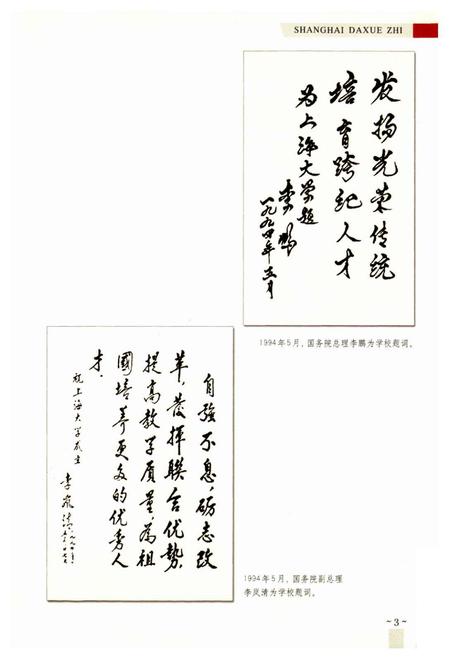 SHANGHAI DAXUE ZHI
发扬光荣传统
培育跨纪人才
为上海大学题
李鹏
一九九四年五月
1994年5月，国务院总理李鹏为学校题词。
自强不息，砺志改
革，发挥联合优势，
提高教学质量，为祖
國培养更多的优秀人
才．
祝上海大学成立
李岚清
1994年5月，国务院副总理
李岚清为学校题词。
~3~